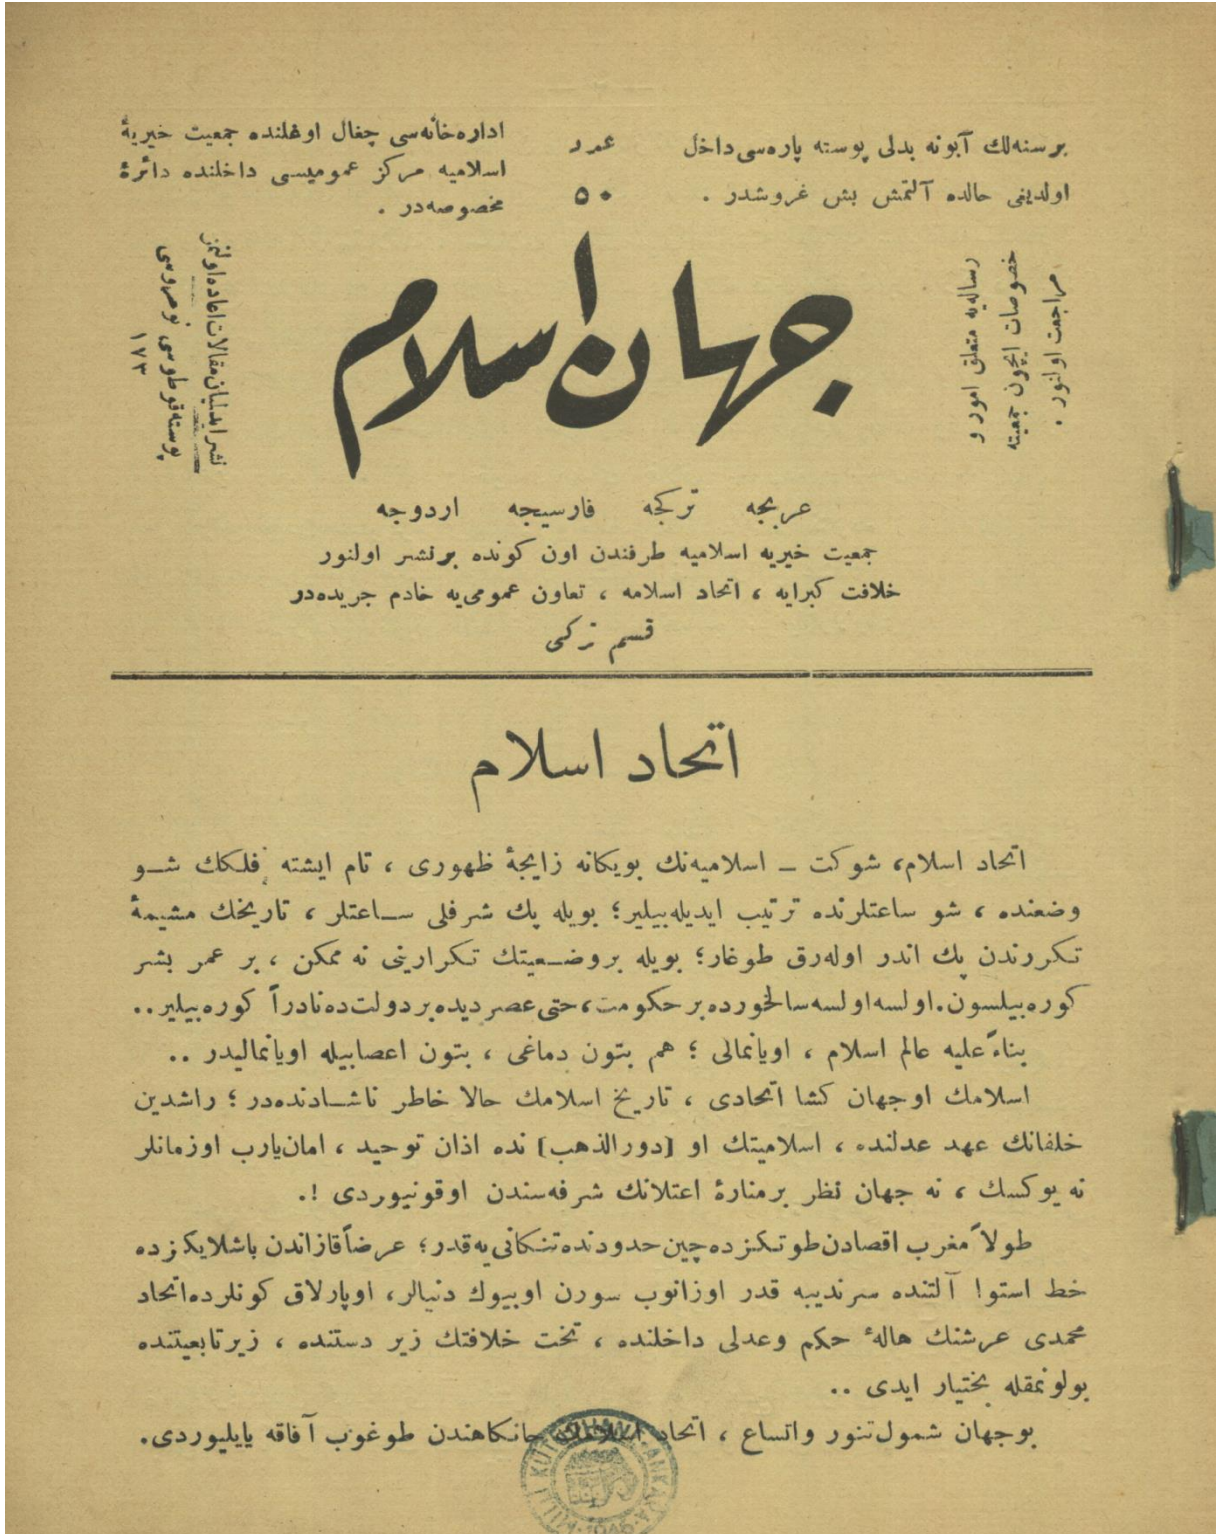 برسنه‌لك آبونه بدلی پوسته پاره‌سی داخل
اولدیغی حالده آلتمش بش غروشدر .
عدد
٥٠
اداره‌خانه‌سی چغال اوغلنده جمعیت خیریهٔ
اسلامیه مرکز عمومیسی داخلنده دائرهٔ
مخصوصه‌در .
رساله‌یه متعلق امور و
خصوصات ایچون جمعیته
مراجعت اولنور .
جهان اسلام
نشر ایدلمیان مقالات اعاده اولنمز
پوسته قوطوسی نومروسی
١٧٣
عربجه تركجه فارسیجه اردوجه
جمعیت خیریه اسلامیه طرفندن اون كونده برنشر اولنور
خلافت كبرایه ، اتحاد اسلامه ، تعاون عمومی‌یه خادم جریده‌در
قسم تركی
اتحاد اسلام
اتحاد اسلام، شوكت ـ اسلامیه‌نك بویكانه زایجهٔ ظهوری ، تام ایشته فلكك شو
وضعنده ، شو ساعتلرنده ترتیب ایدیله‌بیلیر؛ بویله پك شرفلی ساعتلر ، تاریخك مشیمهٔ
تكررندن پك اندر اوله‌رق طوغار؛ بویله بروضعیتك تكرارینی نه ممكن ، بر عمر بشر
كوره‌بیلسون.اولسه‌اولسه‌سالخورده‌برحكومت،حتی‌عصردیده‌بردولت‌ده‌نادراً كوره‌بیلیر..
بناءً علیه عالم اسلام ، اویانمالی ؛ هم بتون دماغی ، بتون اعصابیله اویانمالیدر ..
اسلامك اوجهان كشا اتحادی ، تاریخ اسلامك حالا خاطر ناشادنده‌در ؛ راشدین
خلفانك عهد عدلنده ، اسلامیتك او [دورالذهب] نده اذان توحید ، امان‌یارب اوزمانلر
نه یوكسك ، نه جهان نظر برمنارهٔ اعتلانك شرفه‌سندن اوقونیوردی !.
طولاً مغرب اقصادن‌طوتكزده‌چین‌حدودنده‌تنكانی‌یه‌قدر؛ عرضاًقازاندن باشلایكزده
خط استوا آلتنده سرندیبه قدر اوزانوب سورن اوبیوك دنیالر، اوپارلاق كونلرده‌اتحاد
محمدی عرشنك هالهٔ حكم وعدلی داخلنده ، تخت خلافتك زیر دستنده ، زیرتابعیتنده
بولونمقله بختیار ایدی ..
بوجهان شمول تنور واتساع ، اتحاد جانكاهندن طوغوب آفاقه یایلیوردی.